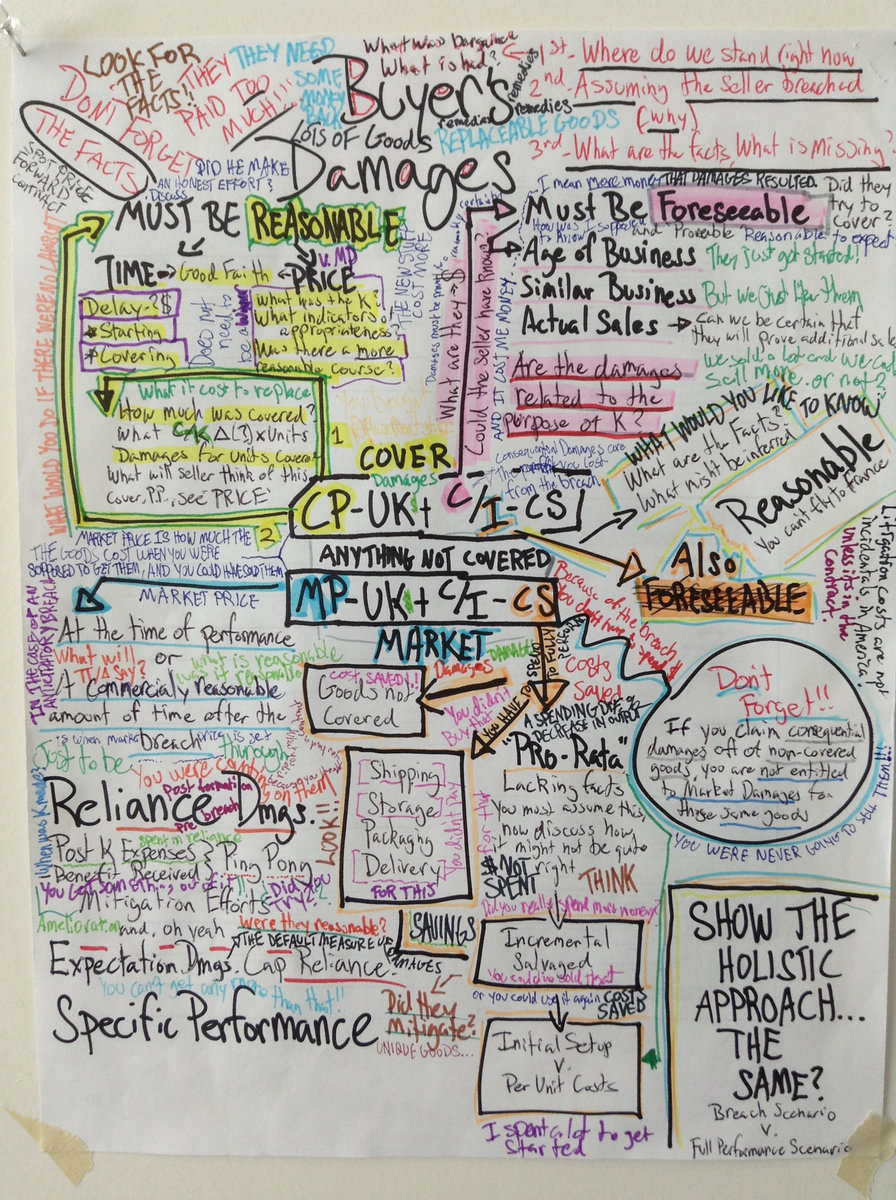 LOOK FOR
THE
FACTS!!
DON'T FORGET
THE FACTS
THEY
PAID TOO
MUCH!!!
THEY NEED
SOME
MONEY
BACK
What was bargained
What is had?
Buyer's
remedies
remedies
remedies
LOTS OF GOODS
REPLACEABLE GOODS
Damages
1st - Where do we stand right now
2nd - Assuming the seller breached
(why)
3rd - What are the facts, What is missing
SPOT PRICE
FORWARD
CONTRACT
DID HE MAKE
AN HONEST EFFORT?
Discuss
MUST BE REASONABLE
TIME Good Faith PRICE
v. MP
Delay?$
*Starting
*Covering
Does not
need to
be a
what was the K?
What indicators of
appropriateness?
Was there a more
reasonable course?
THE NEW STUFF
COST MORE
Damages must be proved to
reasonable certainty
What are they → $
Could the seller have known?
AND IT COST ME MONEY...
I mean more money
THAT DAMAGES RESULTED.
Must Be Foreseeable
How was I supposed
to know
and Provable
Reasonable to expect
Did they
try to
Cover?
Age of Business
They just got started!
Similar Business
But we Just like them
Actual Sales
Can we be certain that
they will prove additional sales
we sold a lot and we could
sell more.. or not?
Are the damages
related to the
purpose of K?
WHAT WOULD YOU DO IF THERE WERE NO LAWSUIT
What it cost to replace
How much was covered?
What Δ(?) x Units
Damages for units covered
What will seller think of this
cover, P.P., see PRICE
1
COVER
Damages
Consequential Damages are
The you lost
from the breach
WHAT WOULD YOU LIKE TO KNOW
What are the Facts?
What might be inferred
Reasonable
You can't fly to France
CP-UK + C/I-CS
2
MARKET PRICE IS HOW MUCH THE
THE GOODS COST WHEN YOU WERE
SUPPOSED TO GET THEM, AND YOU COULD HAVE SOLD THEM
ANYTHING NOT COVERED
MP-UK + C/I-CS
MARKET
Also
FORESEEABLE
Litigation costs are not
incidentals in America!
unless its in the
Contract
MARKET PRICE
IN THE CASE OF AN
ANTICIPATORY BREACH
At the time of performance
What will
π/Δ say?
or
what is reasonable
was it reasonable
At commercially reasonable
amount of time after the
breach
is when market
price is set
Because of the breach
You didn't have to spend it
costs
saved
YOU HAVE TO SPEND
TO FULLY
PERFORM
DAMAGES
Damages
You didn't
buy that
COST SAVED!!
Goods not
Covered
A SPENDING DUE %
DECREASE IN OUTPUT
"PRO-RATA"
Lacking facts
You must assume this,
now discuss how
it might not be quite
right
$ NOT
SPENT
THINK
Don't
Forget!!
If you claim consequential
damages off of non-covered
goods, you are not entitled
to Market Damages for
those same goods
YOU WERE NEVER GOING TO SELL THEM!!!
Just to be
thorough
You were counting on them
Post formation
Pre breach
Reliance Dmgs.
when was K made?
spent in reliance
Post K Expenses?
Ping Pong
Benefit Received
You Got someth..., out of it!!
Did you
try??
Mitigation Efforts
Amelioration
and, oh yeah
were they reasonable?
THE DEFAULT MEASURE OF
DAMAGES
Expectation Dmgs. Cap Reliance.
You can't get any more than that!!
Specific Performance
Did they
mitigate?
UNIQUE GOODS...
LOOK!!!
Shipping
Storage
Packaging
Delivery
FOR THIS
You didn't Pay
for that
SAVINGS
Did you really spend more money?
Incremental
Salvaged
You could've sold that
or you could use it again
COSTS
SAVED
Initial Setup
v.
Per Unit Costs
I spent a lot to get
started
SHOW THE
HOLISTIC
APPROACH...
THE
SAME?
Breach Scenario
v.
Full Performance Scenario